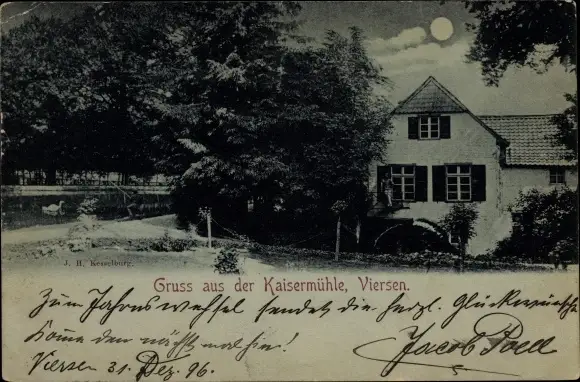 J. H. Kesselburg.
Gruss aus der Kaisermühle, Viersen.
Zum Jahreswechsel sendet die herzl. Glückwünsche
Komme demnächst mal hin!
Jacob
Viersen 31. Dez. 96.